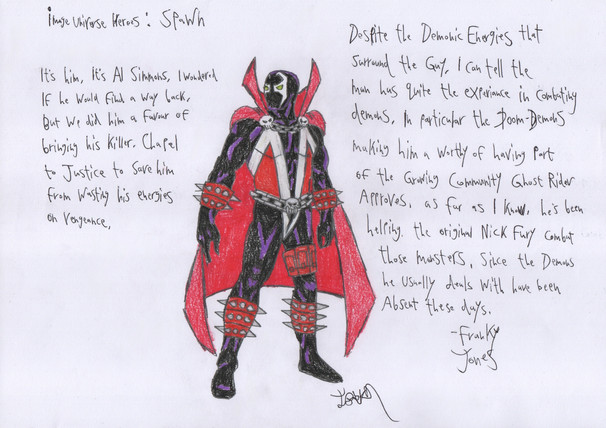 Image Universe Heroes: Spawn
It's him, It's Al Simmons, I wondered
If he would find a way back,
But we did him a favour of
bringing his killer, Chapel
to Justice to save him
from wasting his energies
on Vengeance.
Despite the Demonic Energies that
surround the Guy, I can tell the
man has quite the experience in combating
demons, In particular the Doom-Demons
making him a worthy of having part
of the Growing Community Ghost Rider
Approves, as far as I know, he's been
helping the original Nick Fury combat
those monsters, since the Demons
he usually deals with have been
Absent these days.
-Franky
Jones